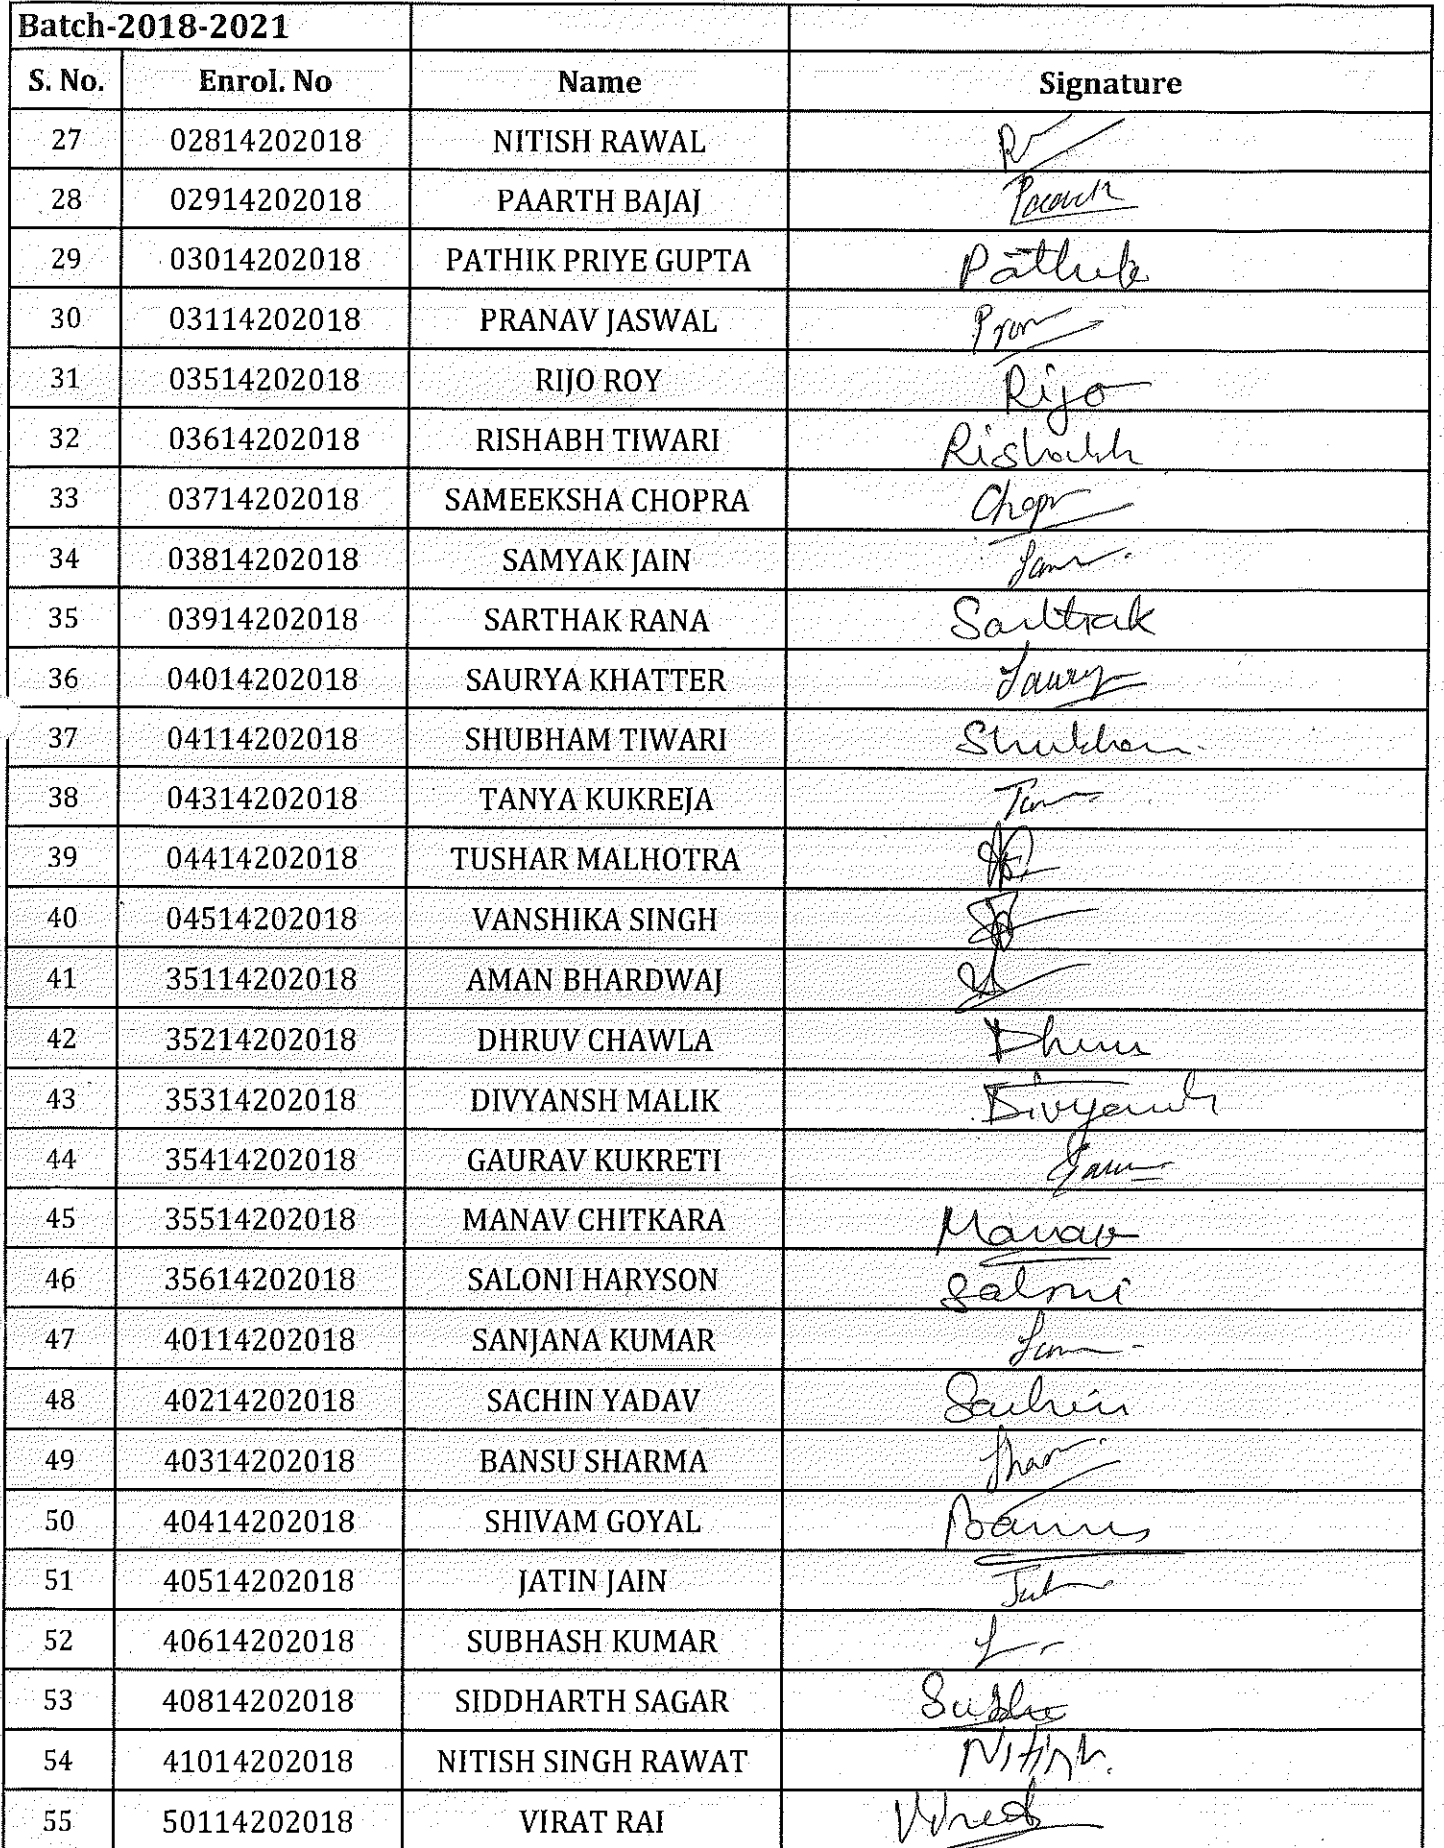 Batch-2018-2021
S. No. Enrol. No Name Signature
27 02814202018 NITISH RAWAL
28 02914202018 PAARTH BAJAJ
29 03014202018 PATHIK PRIYE GUPTA Pathik
30 03114202018 PRANAV JASWAL
31 03514202018 RIJO ROY Rijo
32 03614202018 RISHABH TIWARI Rishabh
33 03714202018 SAMEEKSHA CHOPRA
34 03814202018 SAMYAK JAIN
35 03914202018 SARTHAK RANA Sarthak
36 04014202018 SAURYA KHATTER
37 04114202018 SHUBHAM TIWARI
38 04314202018 TANYA KUKREJA
39 04414202018 TUSHAR MALHOTRA
40 04514202018 VANSHIKA SINGH
41 35114202018 AMAN BHARDWAJ
42 35214202018 DHRUV CHAWLA
43 35314202018 DIVYANSH MALIK Divyansh
44 35414202018 GAURAV KUKRETI
45 35514202018 MANAV CHITKARA Manav
46 35614202018 SALONI HARYSON Saloni
47 40114202018 SANJANA KUMAR
48 40214202018 SACHIN YADAV Sachin
49 40314202018 BANSU SHARMA
50 40414202018 SHIVAM GOYAL
51 40514202018 JATIN JAIN
52 40614202018 SUBHASH KUMAR
53 40814202018 SIDDHARTH SAGAR
54 41014202018 NITISH SINGH RAWAT Nitish
55 50114202018 VIRAT RAI